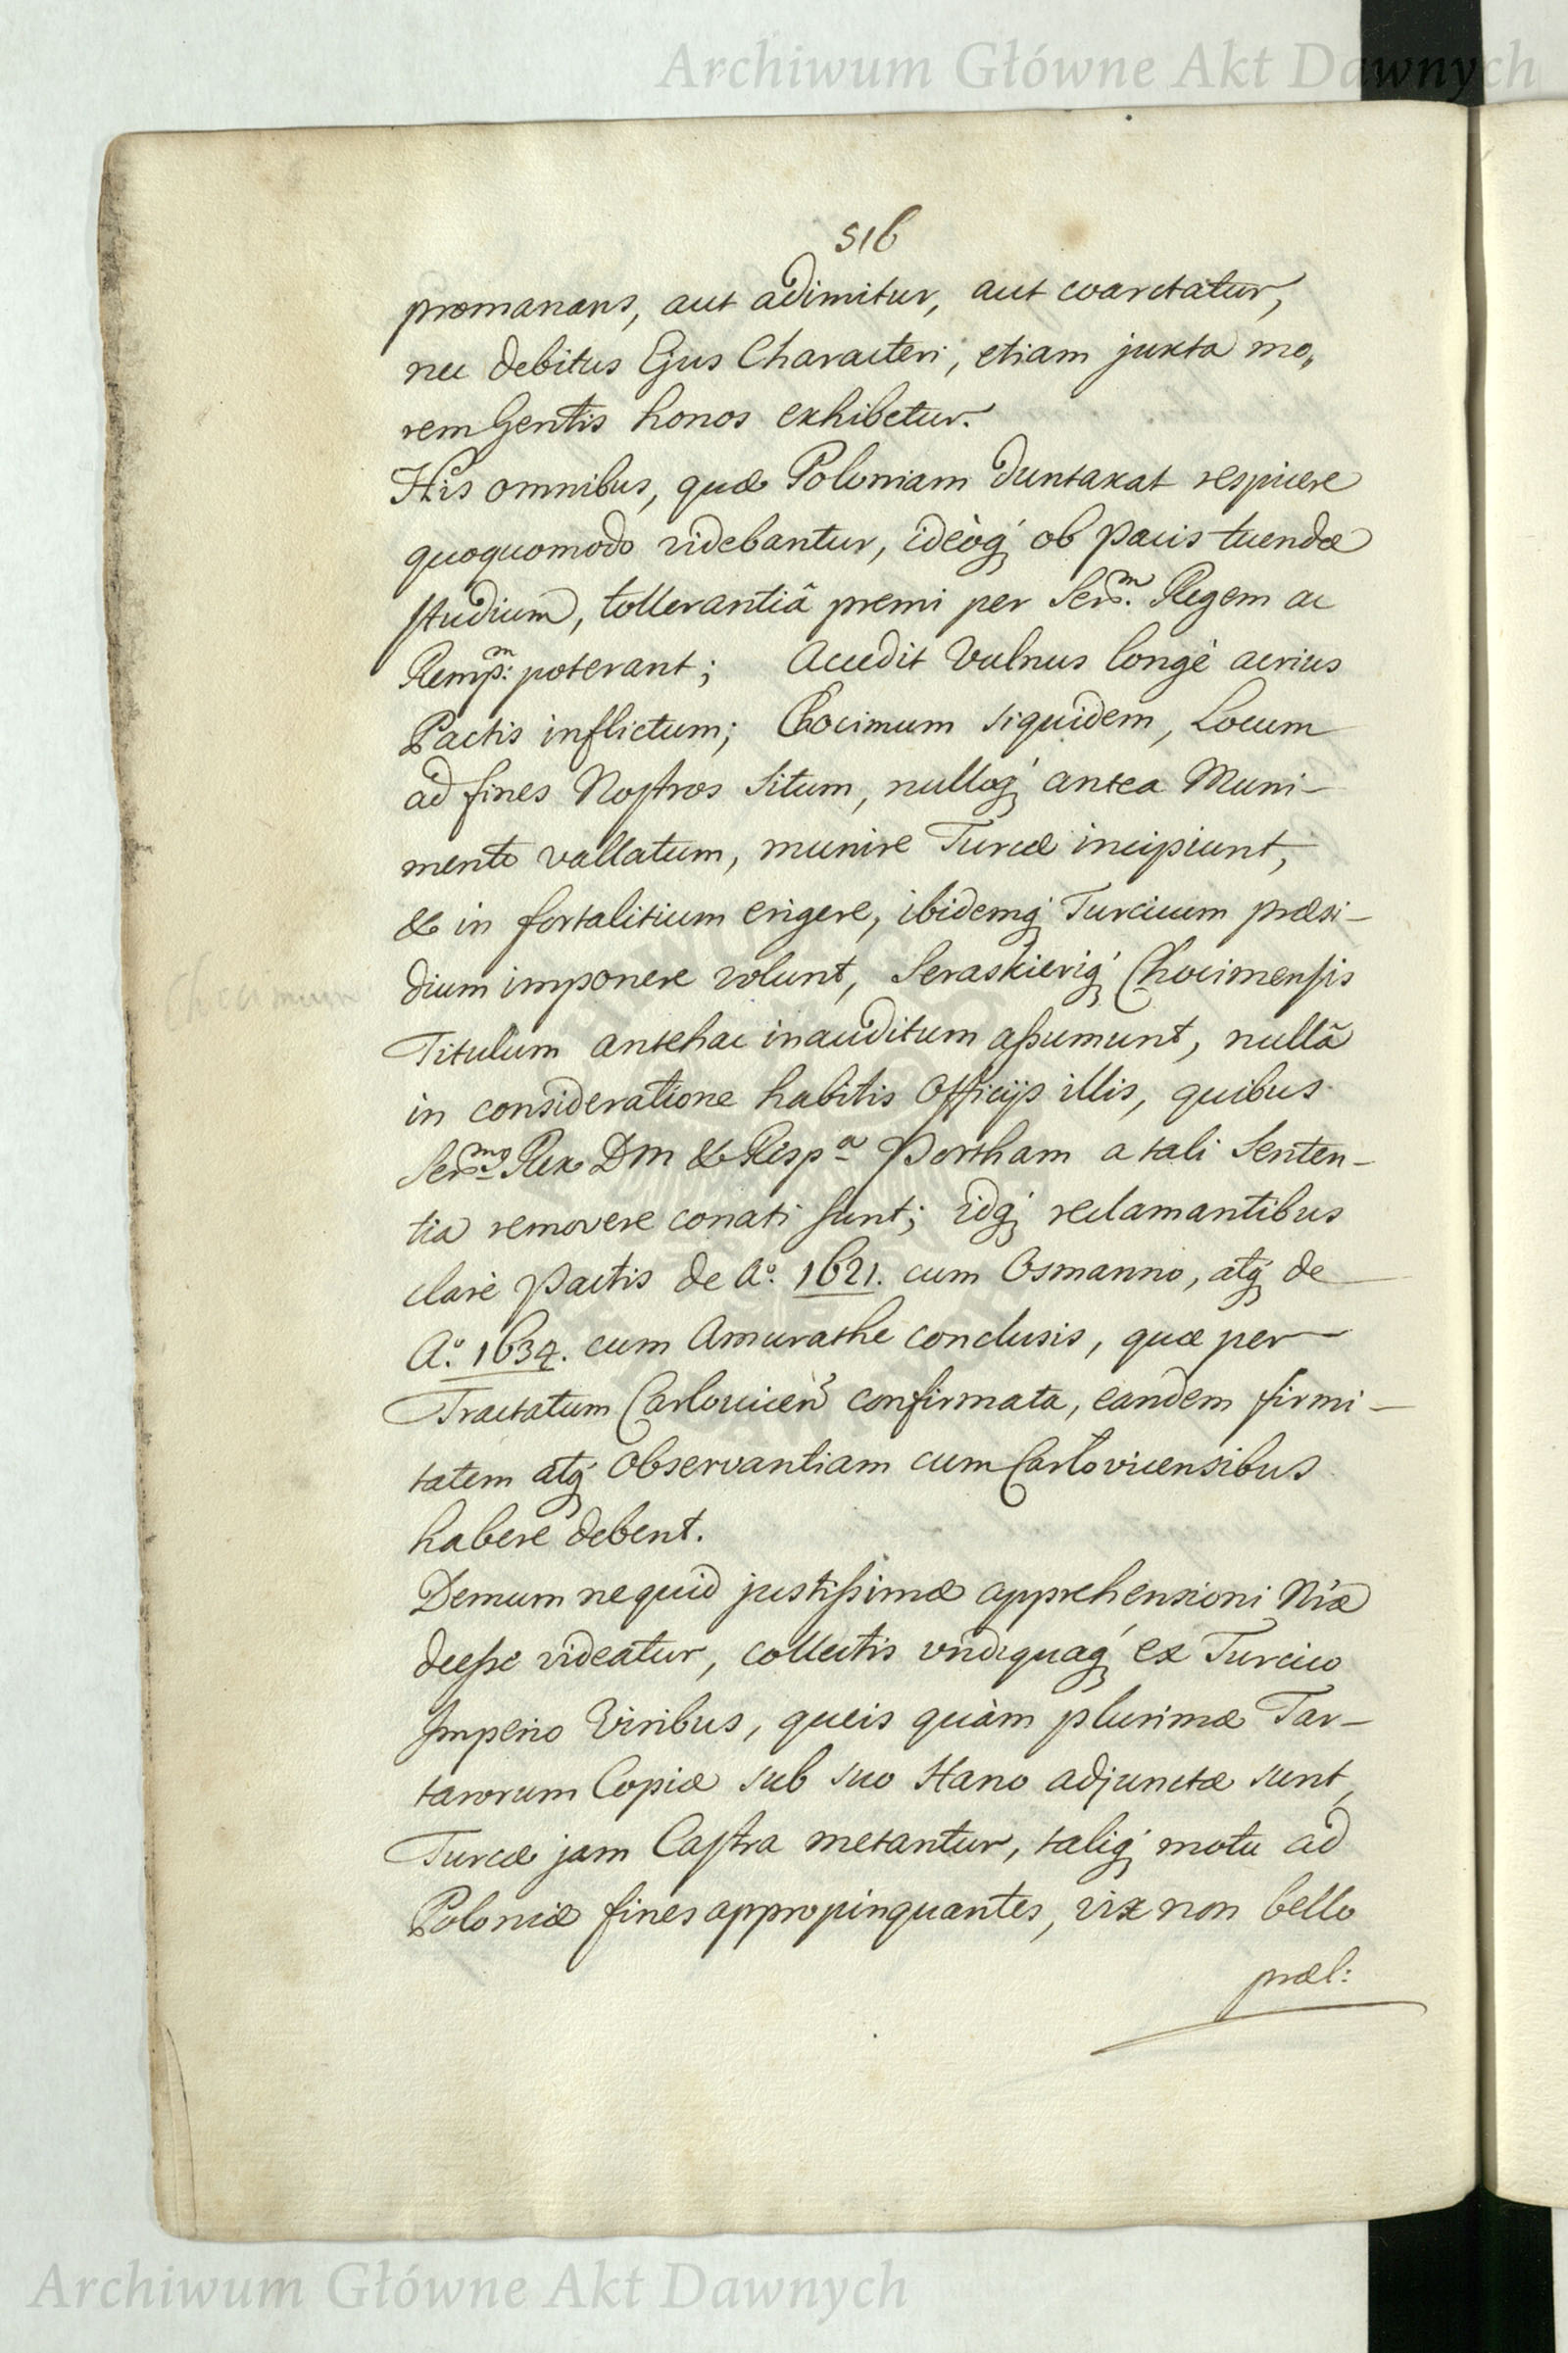 Archiwum Główne Akt Dawnych
516
promanans, aut adimitur, aut coarctatur,
nec debitus Ejus Characteri, etiam juxta mo„
rem Gentis honos exhibetur.
His omnibus, quæ Poloniam duntaxat respicere
quoquomodo videbantur, ideòq́ ob Pacis tuendæ
studium, tollerantiâ premi per Ser:ᵐ Regem ac
Remp:ᵐ poterant; Accedit Vulnus longè acrius
Pactis inflictum; Chocimum siquidem, Locum
ad fines Nostros Situm, nulloq́ antea Muni-
mento vallatum, munire Turcæ incipiunt,
& in fortalitium erigere, ibidemq́ Turcicum præsi-
dium imponere volunt, Seraskieriq́ Chocimensis
Chocimum
Titulum antehac inauditum aſsumunt, nullâ
in consideratione habitis Officijs illis, quibus
Ser:ᵐᵒ Rex Dm & Respᵃ Portham a tali Senten-
tia removere conati sunt; idq́ reclamantibus
clarè Pactis de Aº. 1621. cum Osmanno, atq́ de
Aº. 1634. cum Amurathe conclusis, quæ per
Tractatum Carlovicen̄ confirmata, eandem firmi-
tatem atq́ Observantiam cum Carlovicensibus
habere debent.
Demum nequid justiſsimæ apprehensioni Nr̃æ
deeſse videatur, collectis undiquaq́ ex Turcico
Imperio Viribus, queis quàm plurimæ Tar-
tarorum Copiæ sub suo Hano adjunctæ sunt,
Turcæ jam Castra metantur, taliq́ motu ad
Poloniæ fines appropinquantes, vix non bello
præl:
Archiwum Główne Akt Dawnych